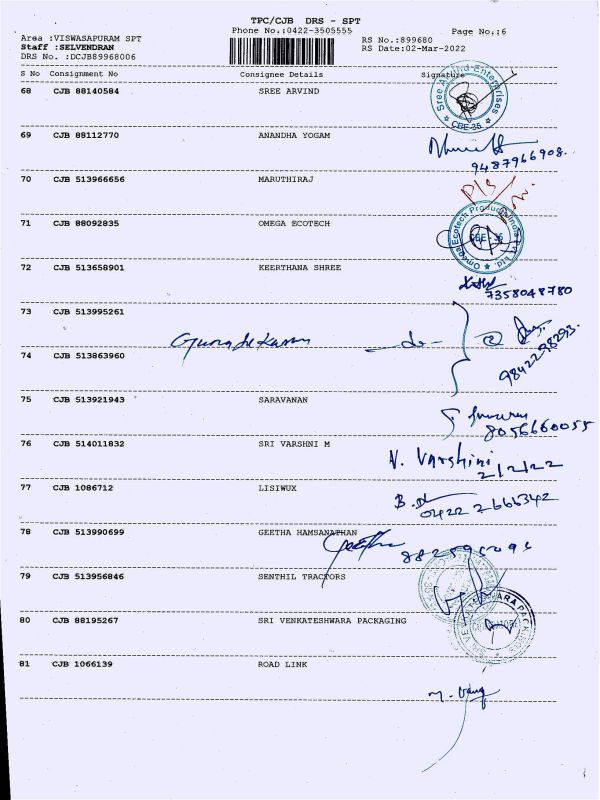 TPC/CJB DRS - SPT
Phone No.:0422-3505555
Page No.:6
Area :VISWASAPURAM SPT
RS No.:899680
Staff :SELVENDRAN
RS Date:02-Mar-2022
DRS No. :DCJB89968006
S No Consignment No Consignee Details Signature
68 CJB 88140584 SREE ARVIND
Enterprises
CBE-35
69 CJB 88112770 ANANDHA YOGAM
9487966908.
70 CJB 513966656 MARUTHIRAJ
71 CJB 88092835 OMEGA ECOTECH
Omega Ecotech Products India Pvt. Ltd.
72 CJB 513658901 KEERTHANA SHREE
7358048780
73 CJB 513995261
-do-
9842298293.
74 CJB 513863960
75 CJB 513921943 SARAVANAN
8056660055
76 CJB 514011832 SRI VARSHNI M
N. Varshini
2/2/22
77 CJB 1086712 LISIWUX
0422 2666342
78 CJB 513990699 GEETHA HAMSANATHAN
Geetha
79 CJB 513956846 SENTHIL TRACTORS
80 CJB 88195267 SRI VENKATESHWARA PACKAGING
81 CJB 1066139 ROAD LINK